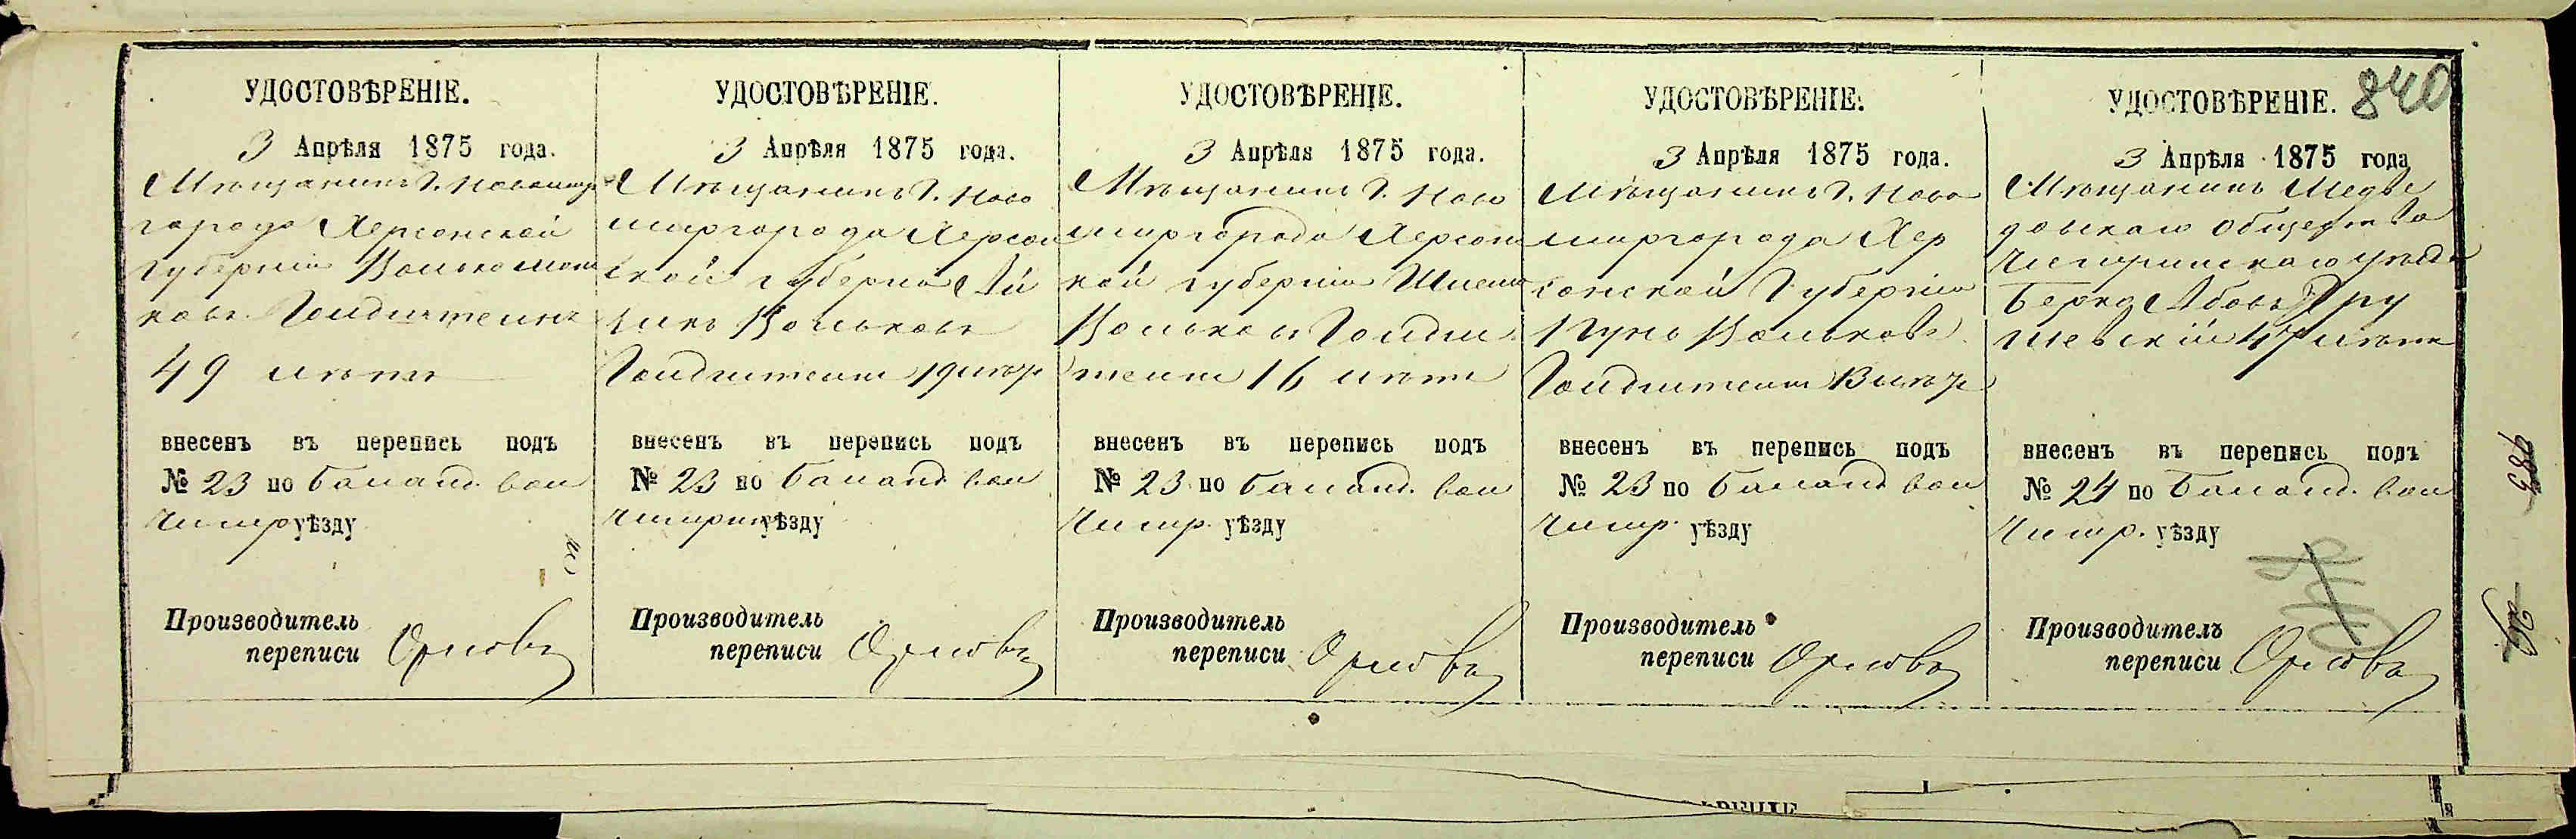 840
УДОСТОВѢРЕНІЕ.
3 Апрѣля 1875 года.
Мѣщанинъ г. Новомир
города Херсонской
губерніи Волько
ковъ Гольдштейнъ
49 лѣтъ
внесенъ въ перепись подъ
№ 23 по Баланд. вол
Чигир уѣзду
Производитель
переписи Орловъ
УДОСТОВѢРЕНІЕ.
3 Апрѣля 1875 года.
Мѣщанинъ г. Ново
миргорода Херсон
ской губерніи
Вольковъ
Гольдштейнъ 19 лѣтъ
внесенъ въ перепись подъ
№ 23 по Баланд. вол
Чигирин уѣзду
Производитель
переписи Орловъ
УДОСТОВѢРЕНІЕ.
3 Апрѣля 1875 года.
Мѣщанинъ г. Ново
миргорода Херсон
кой губерніи Шлема
Вольковъ Гольдш
тейнъ 16 лѣтъ
внесенъ въ перепись подъ
№ 23 по Баланд. вол
Чигир. уѣзду
Производитель
переписи Орловъ
УДОСТОВѢРЕНІЕ.
3 Апрѣля 1875 года.
Мѣщанинъ г. Ново
миргорода Хер
сонской Губерніи
Вольковъ
Гольдштейнъ 13 лѣтъ
внесенъ въ перепись подъ
№ 23 по Баланд вол
Чигир. уѣзду
Производитель
переписи Орловъ
УДОСТОВѢРЕНІЕ.
3 Апрѣля 1875 года
Мѣщанинъ Медве
довскаго Общества
Чигиринскаго уѣзда
Берко Абовъ Тру
шевскій 47 лѣтъ
внесенъ въ перепись подъ
№ 24 по Баланд. вол
Чигир. уѣзду
Производитель
переписи Орловъ